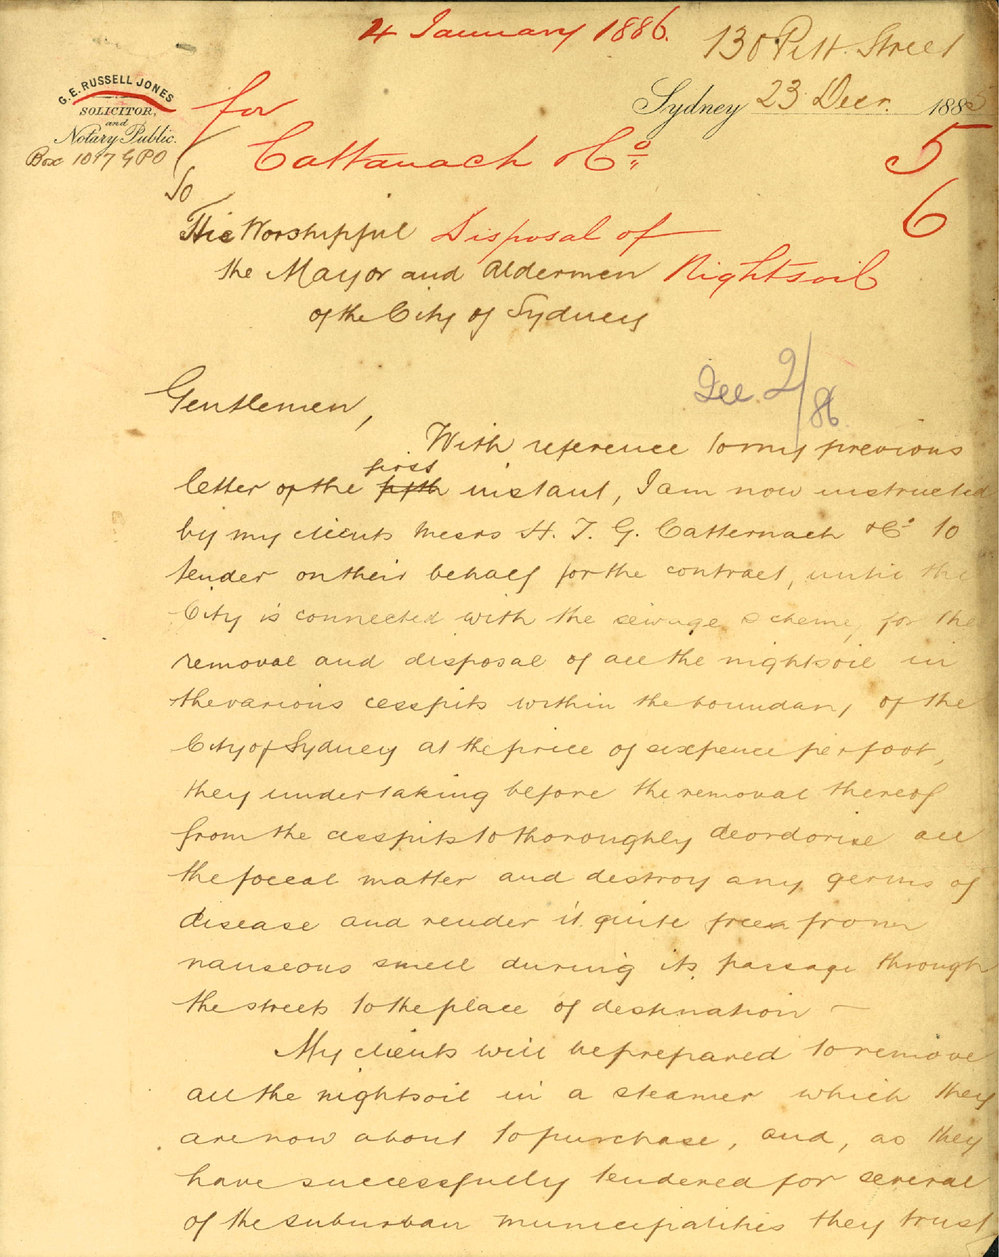 4 January 1886.
130 Pitt. Street
G. E. RUSSELL JONES
SOLICITOR,
and
Notary Public.
Box 1017 GPO
Sydney 23 Decr. 1885
for
Cattanach & Co
5
6
To
His Worshipful
Disposal of
the Mayor and Aldermen
Nightsoil
of the City of Sydney
Gentlemen,
2/86
With reference to my previous
first
letter of the fifth instant, I am now instructed
by my clients Messrs H. T. G. Catternach & Co to
tender on their behalf for the contract, until the
City is connected with the sewage scheme, for the
removal and disposal of all the nightsoil in
the various cesspits within the boundary of the
City of Sydney at the price of sixpence per foot,
they undertaking before the removal thereof
from the cesspits to thoroughly deordorise all
the foecal matter and destroy any germs of
disease and render it quite free from
nauseous smell during its passage through
the streets to the place of destination —
My clients will be prepared to remove
all the nightsoil in a steamer which they
are now about to purchase, and, as they
have successfully tendered for several
of the suburban municipalities they trust